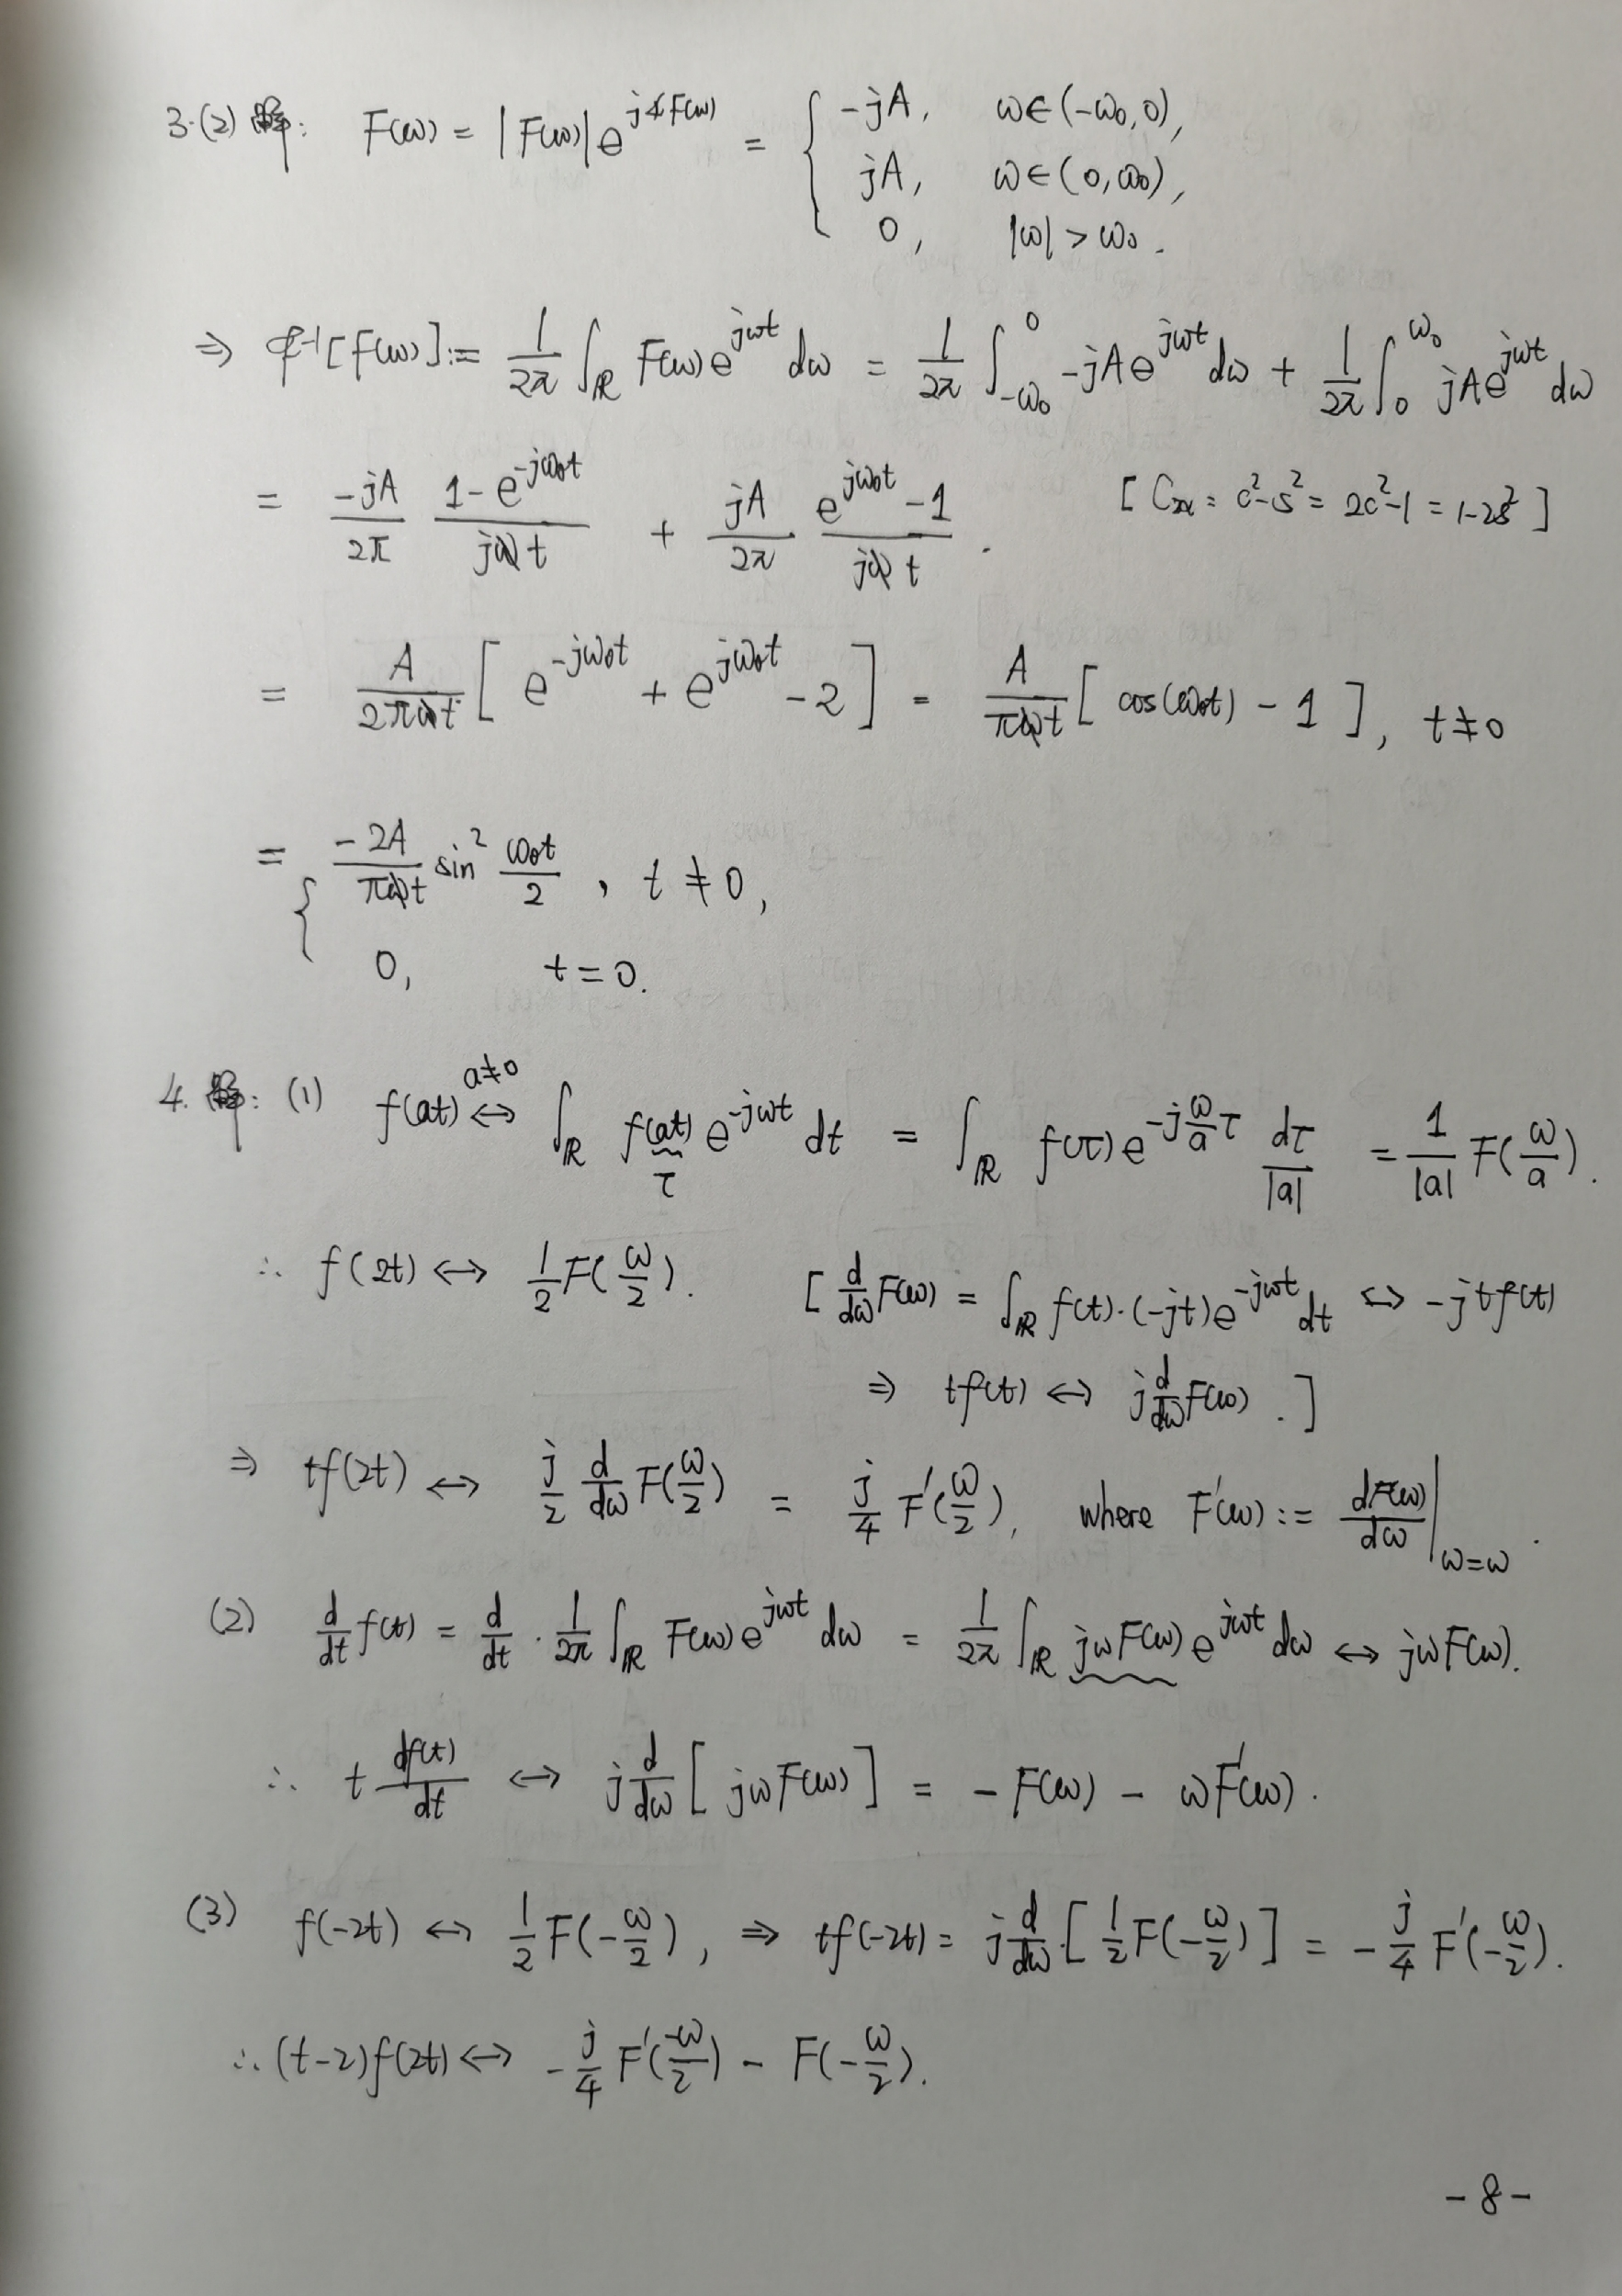 3.(2) 解: F(ω) = |F(ω)| e^{j∡F(ω)} = { -jA, ω∈(-ω₀,0),
jA, ω∈(0,ω₀),
0, |ω| > ω₀.
⇒ ℱ⁻¹[F(ω)] := 1/2π ∫_ℝ F(ω)e^{jωt} dω = 1/2π ∫_{-ω₀}^{0} -jAe^{jωt} dω + 1/2π ∫_0^{ω₀} jAe^{jωt} dω
= -jA/2π (1-e^{-jω₀t})/(jt) + jA/2π (e^{jω₀t}-1)/(jt). [C₂ₓ = c²-s² = 2c²-1 = 1-2s²]
= A/(2πt) [e^{-jω₀t} + e^{jω₀t} - 2] = A/(πt) [cos(ω₀t) - 1], t≠0
= { -2A/(πt) sin² ω₀t/2, t≠0,
0, t=0.
4. 解: (1) f(at) ↔^{a≠0} ∫_ℝ f(at) e^{-jωt} dt = ∫_ℝ f(τ) e^{-j(ω/a)τ} dτ/|a| = 1/|a| F(ω/a).
τ
∴ f(2t) ↔ 1/2 F(ω/2). [d/dω F(ω) = ∫_ℝ f(t)·(-jt)e^{-jωt} dt ↔ -jtf(t)
⇒ tf(t) ↔ j d/dω F(ω).]
⇒ tf(2t) ↔ j/2 d/dω F(ω/2) = j/4 F'(ω/2), where F'(ω) := dF(ω)/dω |_{ω=ω}.
(2) d/dt f(t) = d/dt · 1/2π ∫_ℝ F(ω)e^{jωt} dω = 1/2π ∫_ℝ jωF(ω) e^{jωt} dω ↔ jωF(ω).
∴ t df(t)/dt ↔ j d/dω [jωF(ω)] = -F(ω) - ωF'(ω).
(3) f(-2t) ↔ 1/2 F(-ω/2), ⇒ tf(-2t) = j d/dω [1/2 F(-ω/2)] = -j/4 F'(-ω/2).
∴ (t-2)f(2t) ↔ -j/4 F'(-ω/2) - F(-ω/2).
-8-